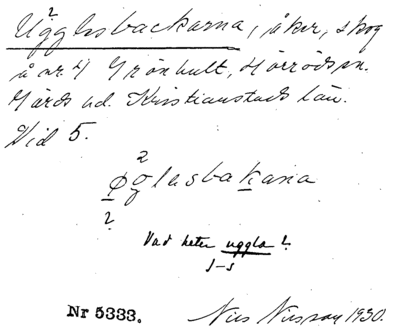 Ugglesbackarna, åker, skog
å nr. 4 Grönhult, Hörröds sn.
Gärds hd. Kristianstads län.
Vid 5.
2
øglasbakana
2
Vad heter uggla?
J-s
Nr 5333. Nils Nilsson 1930.